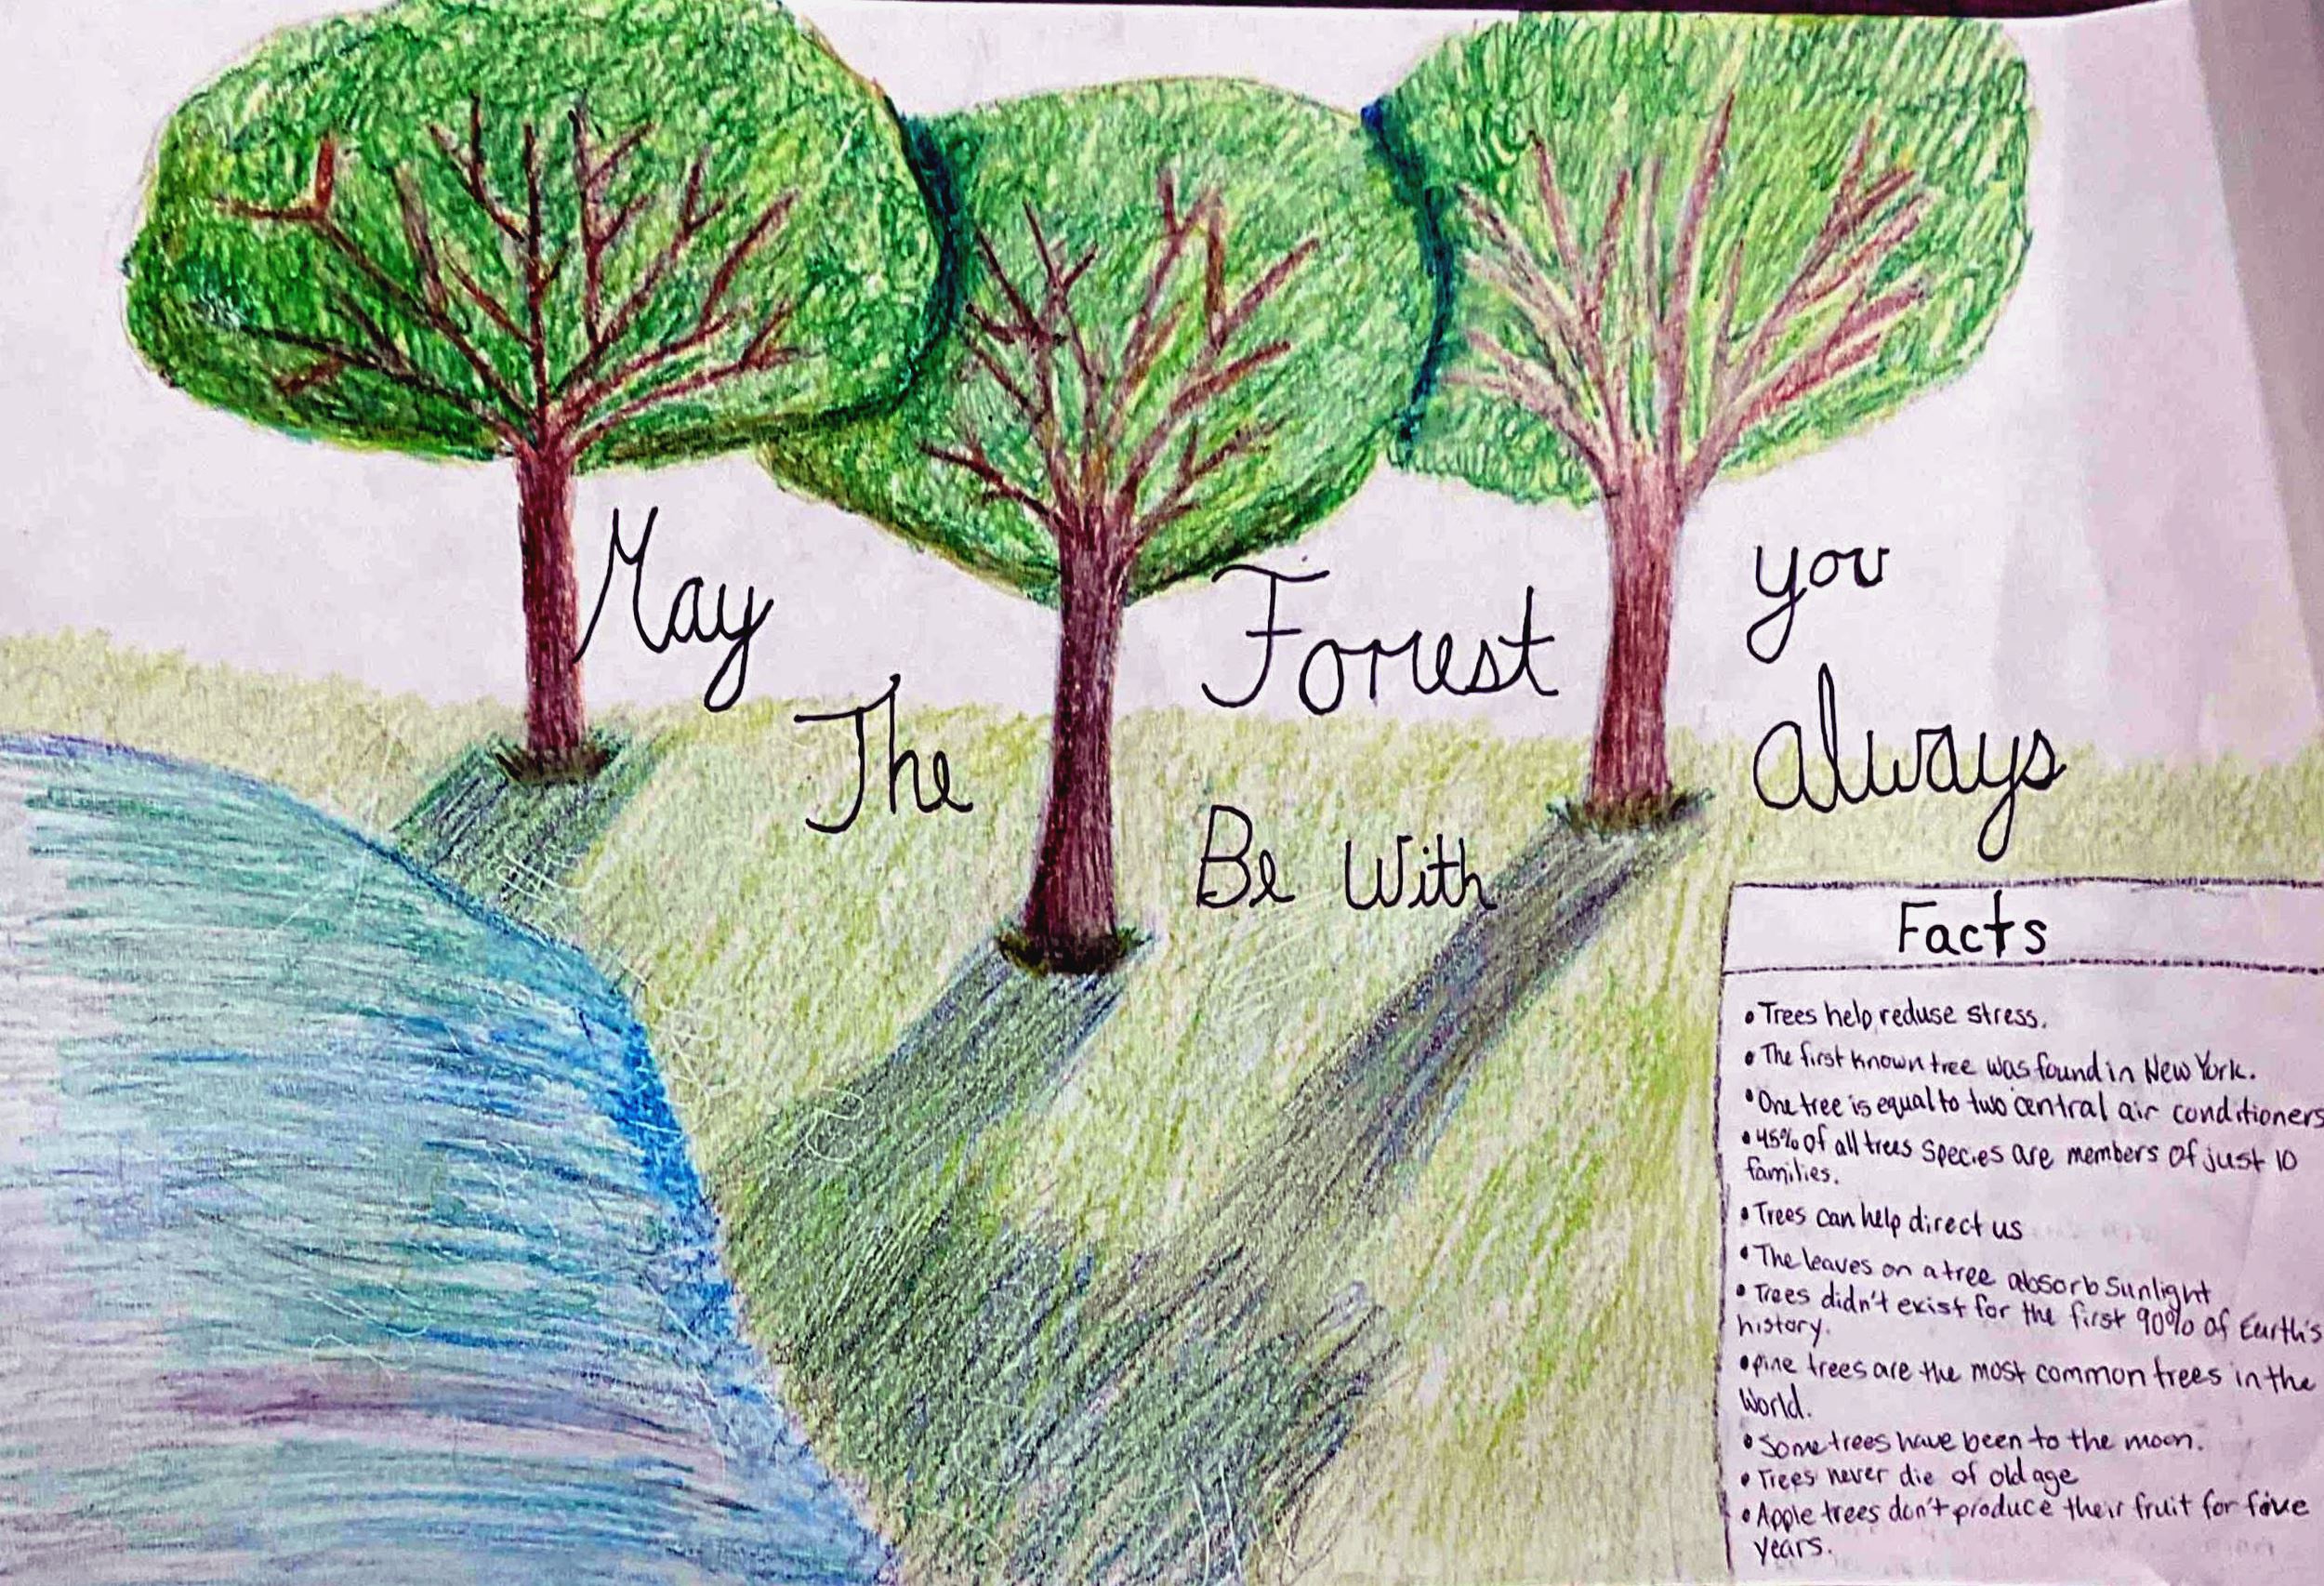 May
The
Forrest
Be With
you
always
Facts
• Trees help reduse stress.
• The first known tree was found in New York.
• One tree is equal to two central air conditioners
• 45% of all trees species are members of just 10
families.
• Trees can help direct us
• The leaves on a tree absorb sunlight
• Trees didn't exist for the first 90% of Earth's
history.
• pine trees are the most common trees in the
world.
• Some trees have been to the moon.
• Trees never die of old age
• Apple trees don't produce their fruit for five
years.